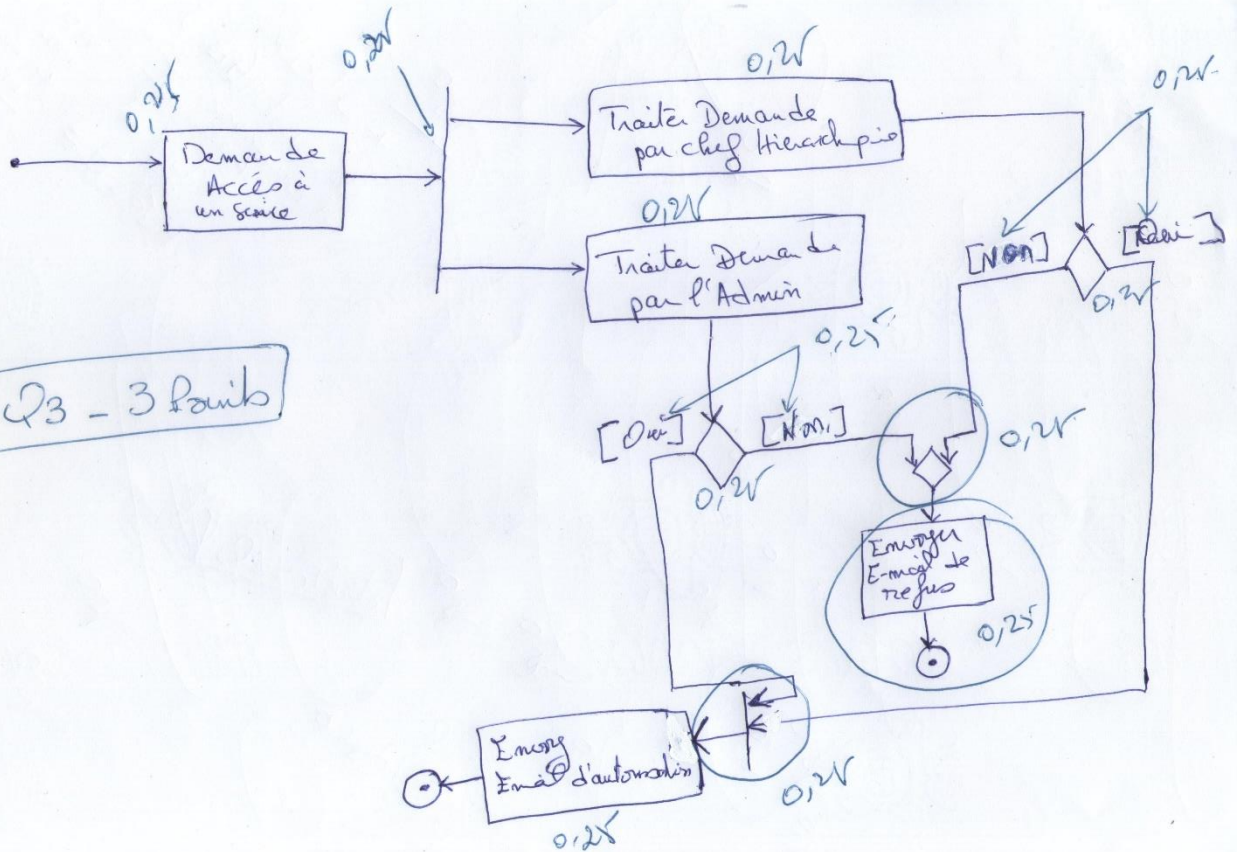 0,25
0,25
0,25
0,25
Demande
Accés à
un
Traiter Demande
par chef Hierarchpie
0,25
Traiter Demande
par l'Admin
[Non]
0,25
0,25
Q3 - 3 Points
[Oui]
[Non]
0,25
0,25
Envoyer
E-mail de
refus
0,25
Envoy
Email d'autorisation
0,25
0,25